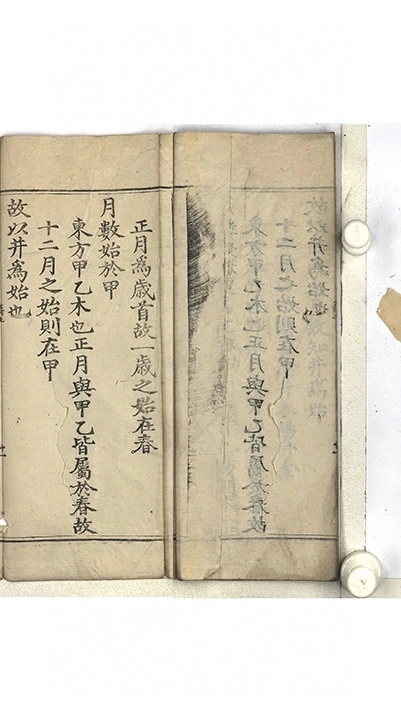 正月爲歲首故一歲之始在春
月數始於甲
東方甲乙木也正月與甲乙皆屬於春故
十二月之始則在甲
故以井爲始也